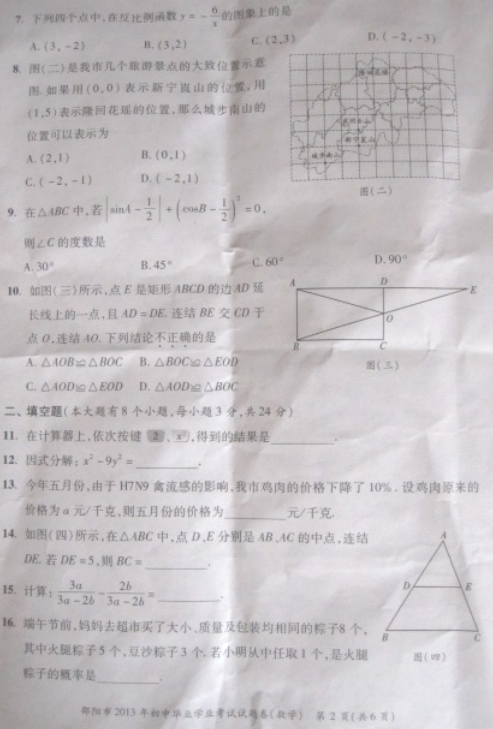 7. 下列四个点中,在反比例函数 y = - 6/x 的图象上的是
A. (3, -2) B. (3,2) C. (2,3) D. (-2, -3)
8. 图(二)是我市几个旅游景点的大致位置示意
图.如果用(0,0)表示新宁崀山的位置,用
(1,5)表示隆回花瑶的位置,那么城步南山的
位置可以表示为
A. (2,1) B. (0,1)
C. (-2, -1) D. (-2,1)
隆回花瑶
新宁崀山
城步南山
图(二)
9. 在△ABC 中,若 |sinA - 1/2| + (cosB - 1/2)² = 0,
则∠C 的度数是
A. 30° B. 45° C. 60° D. 90°
10. 如图(三)所示,点 E 是矩形 ABCD 的边 AD 延
长线上的一点,且 AD = DE. 连结 BE 交 CD 于
点 O,连结 AO. 下列结论不正确的是
A. △AOB≌△BOC B. △BOC≌△EOD
C. △AOD≌△EOD D. △AOD≌△BOC
A D E
O
B C
图(三)
二、填空题(本大题有 8 个小题,每小题 3 分,共 24 分)
11. 在计算器上,依次按键 2 、 x² ,得到的结果是________.
12. 因式分解: x² - 9y² = ________.
13. 今年五月份,由于 H7N9 禽流感的影响,我市鸡肉的价格下降了 10% . 设鸡肉原来的
价格为 a 元/千克,则五月份的价格为________元/千克.
14. 如图(四)所示,在△ABC 中,点 D、E 分别是 AB、AC 的中点,连结
DE. 若 DE = 5,则 BC = ________.
15. 计算: 3a/(3a - 2b) - 2b/(3a - 2b) = ________.
16. 端午节前,妈妈去超市买了大小、质量及包装均相同的粽子8 个,
其中火腿粽子 5 个,豆沙粽子 3 个. 若小明从中任取 1 个,是火腿
粽子的概率是________.
A
D E
B C
图(四)
邵阳市 2013 年初中毕业学业考试试题卷(数学) 第 2 页(共 6 页)